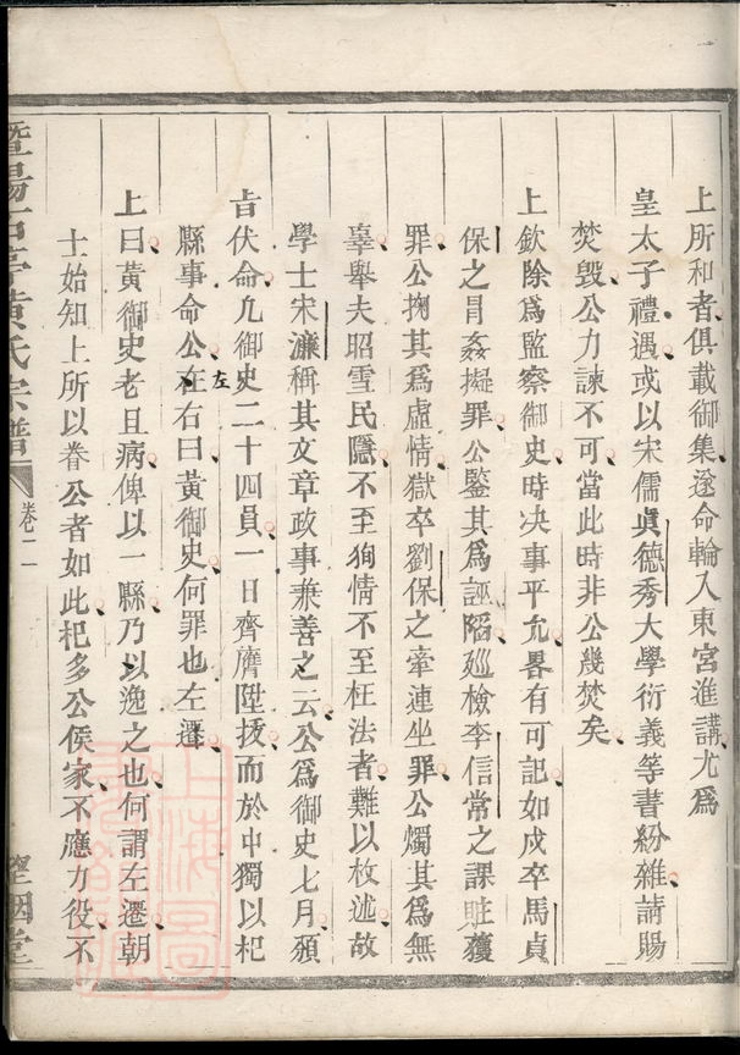 上所和者俱載御集遂命輪入東宮進講尤爲
皇太子禮遇或以宋儒眞德秀大學衍義等書紛雜請賜
焚毀公力諫不可當此時非公幾焚矣
上欽除爲監察御史時决事平允畧有可記如戍卒馬貞
保之冒姦擬罪公鑒其爲誣陷廵檢李信常之課賍獲
罪公掬其爲虛情獄卒劉保之牽連坐罪公燭其爲無
辜舉夫昭雪民隱不至狥情不至枉法者難以枚述故
學士宋濂稱其文章政事兼善之云公爲御史七月頒
旨伏命凢御史二十四員一日齊膺陞㧞而於中獨以杞
縣事命公在左右曰黃御史何罪也左遷
上曰黃御史老且病俾以一縣乃以逸之也何謂左遷朝
士始知上所以眷公者如此杞多公侯家不應力役不
暨陽古亭黃氏宗譜 卷二 一